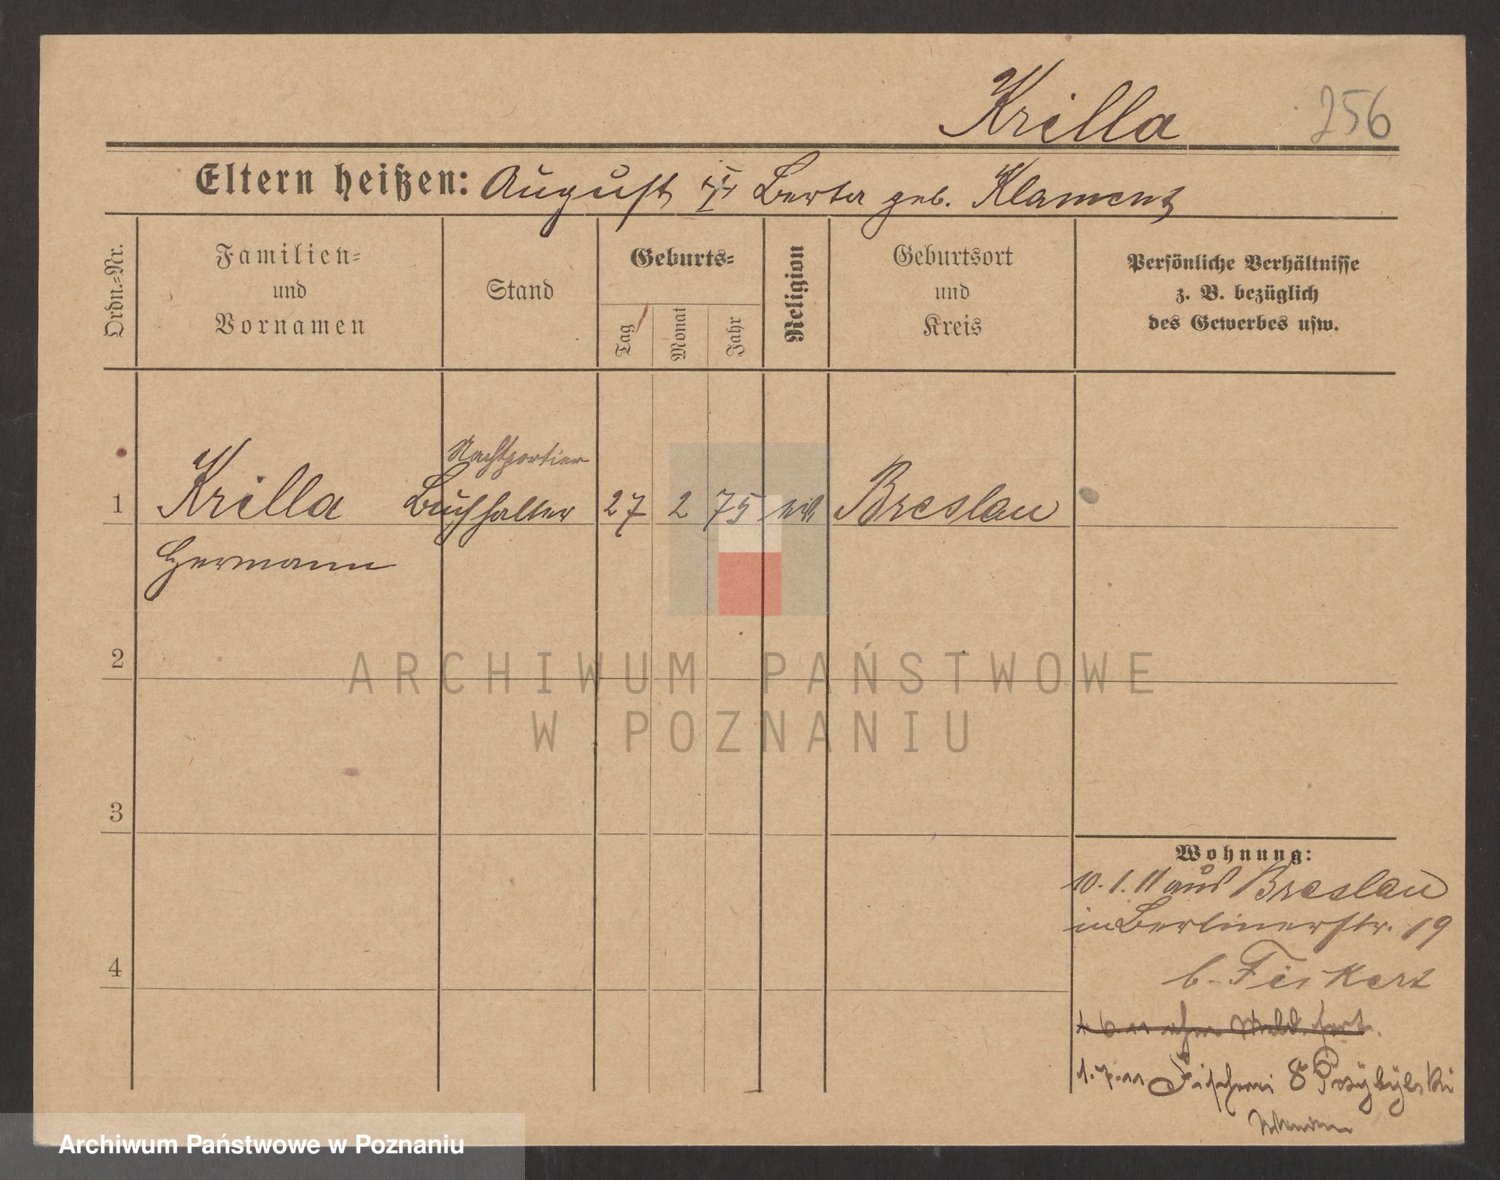 Krilla 256
Eltern heißen: August Berta geb. Klament
Ordn.-Nr.
Familien-
und
Vornamen
Stand
Geburts-
Tag
Monat
Jahr
Religion
Geburtsort
und
Kreis
Persönliche Verhältnisse
z. B. bezüglich
des Gewerbes usw.
Nachtportier
1 Krilla Buchhalter 27 2 75 Breslau
Hermann
2
3
4
Wohnung:
10.1.11 aus Breslau
in Berlinerstr. 19
b. Fickert
1.7.11 Fischerei 8
ARCHIWUM PAŃSTWOWE
W POZNANIU
Archiwum Państwowe w Poznaniu